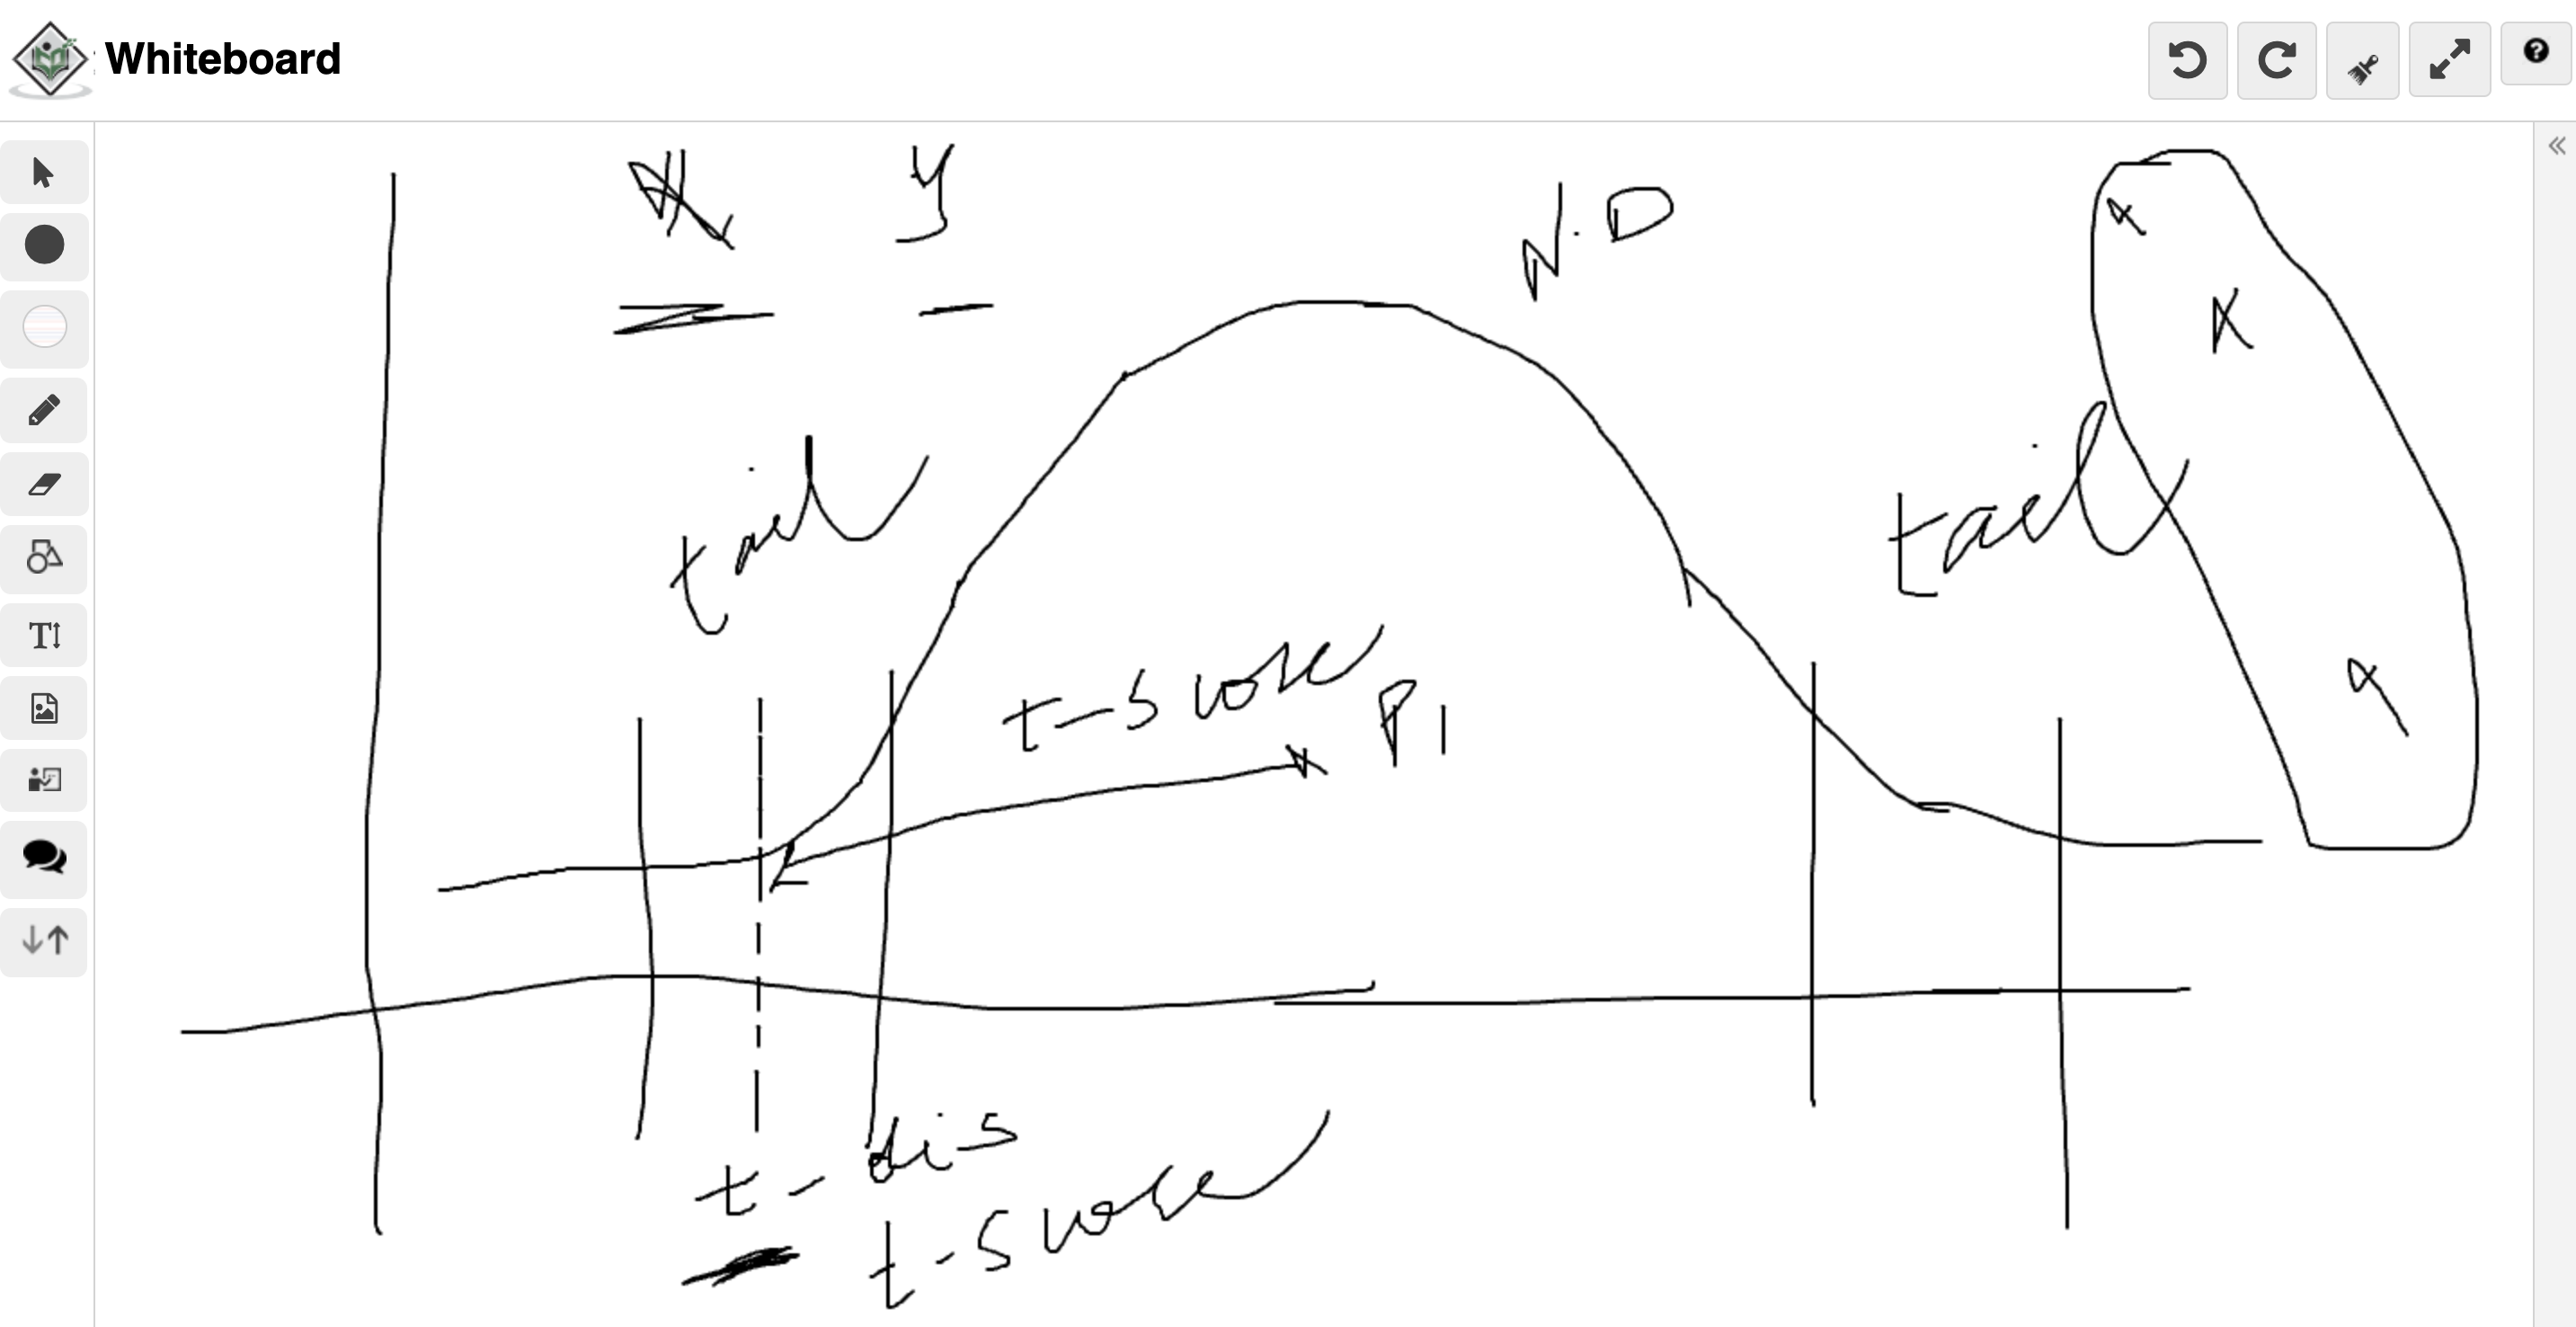 Whiteboard
y
N.D
tail
tail
t-score
P1
t-dis
t-score